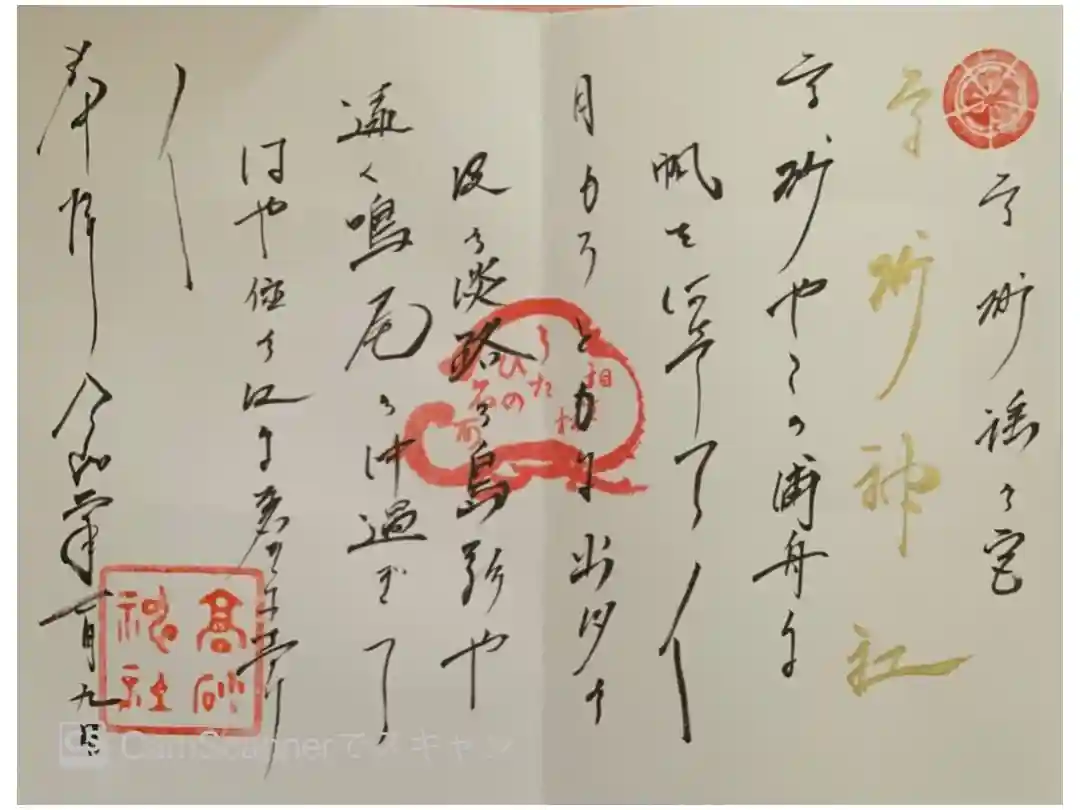 高砂謡の宮
高砂神社
高砂やこの浦舟に
帆を
月もろともに出汐の
波の淡路の島影や
遠く鳴尾の沖過ぎて
はや住の江に着きにけり
奉拝
月九日
高砂
神社
相
ひの
CamScannerでスキャン